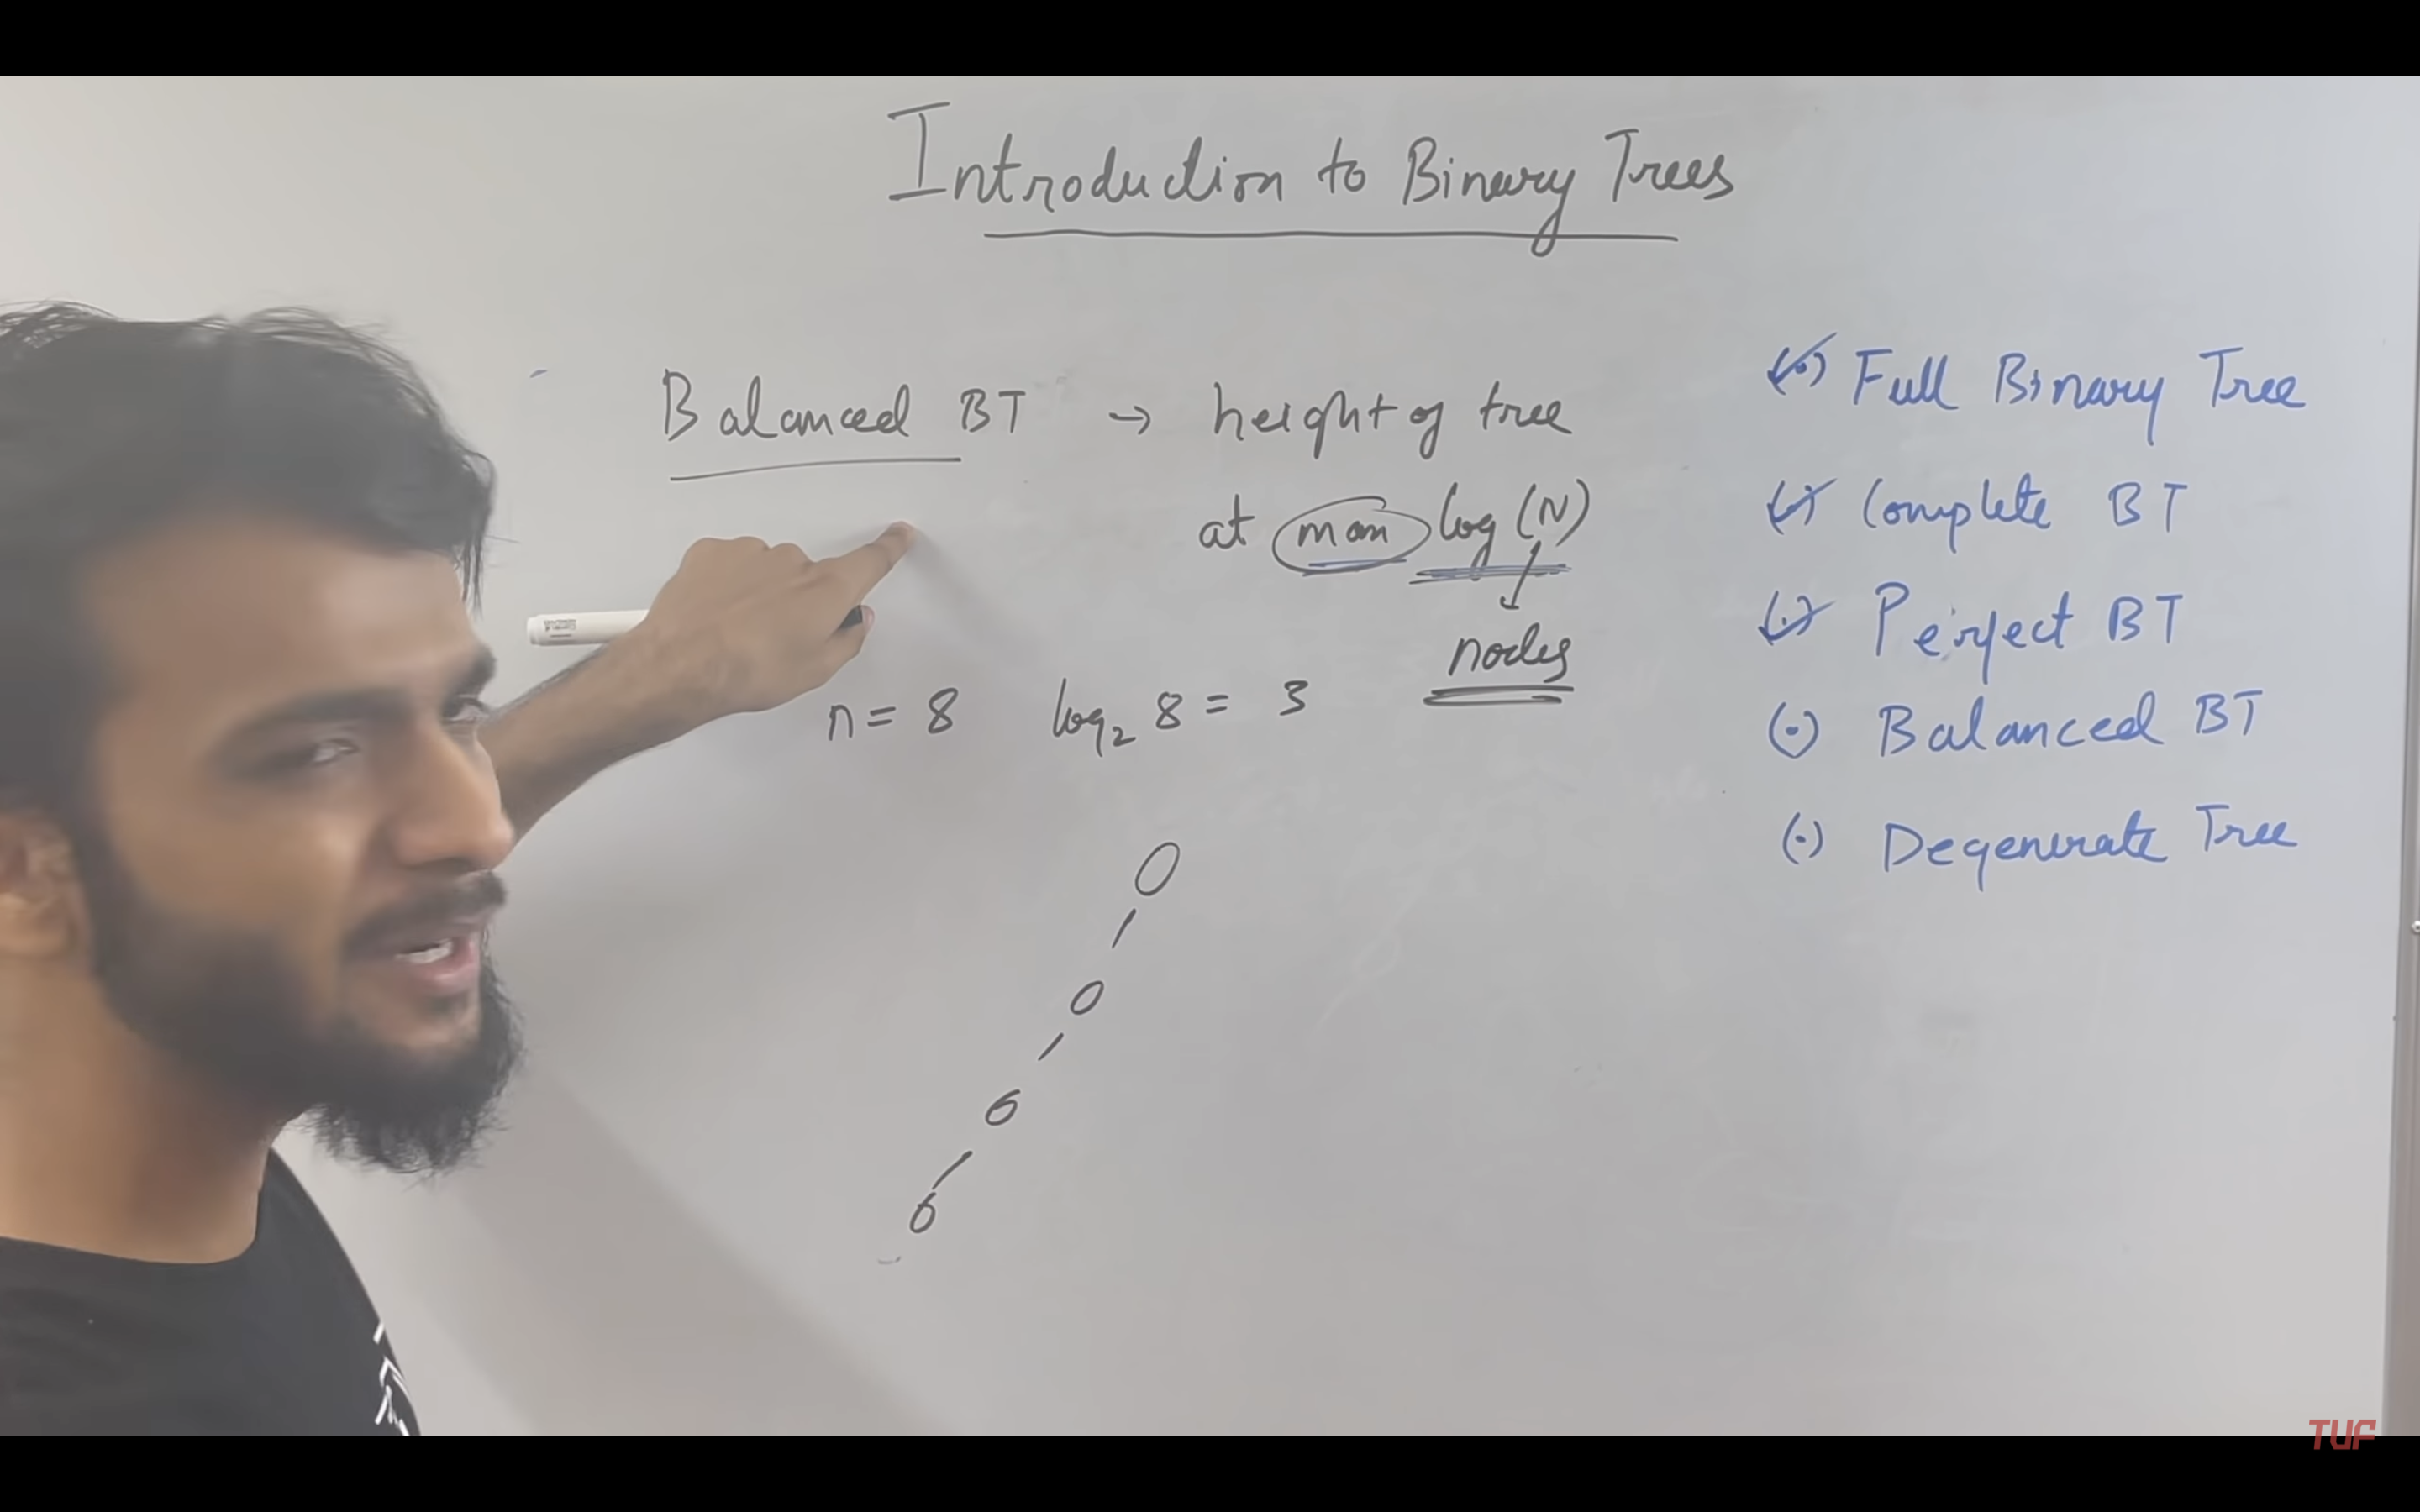 Introduction to Binary Trees
Balanced BT → height of tree
at max log(N)
nodes
n = 8 log₂ 8 = 3
(•) Full Binary Tree
(•) Complete BT
(•) Perfect BT
(•) Balanced BT
(•) Degenerate Tree
TUF